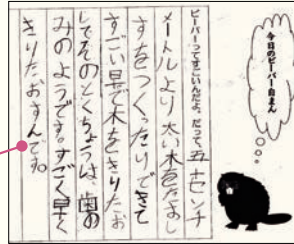 今日のビーバー自まん
ビーバーってすごいんだよ。だって、五十センチ
メートルより太い木をたおし
すをつくったりできて
すごい早で木をきりたお
しでそのとくちょうは、歯の
みのようです。すごく早く
きりたおすんです。